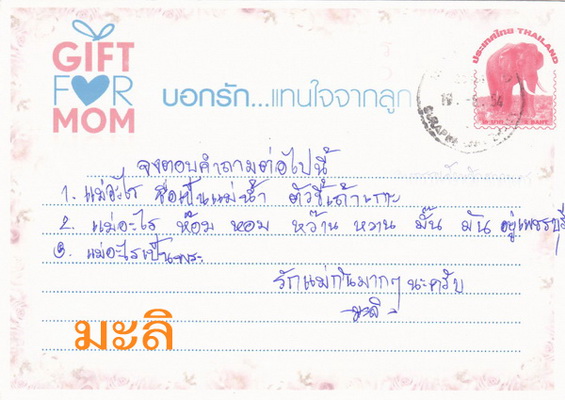 GIFT
FOR
MOM
บอกรัก...แทนใจจากลูก
ประเทศไทย THAILAND
จงตอบคำถามต่อไปนี้
1. แม่อะไร ชื่อเป็นแม่น้ำ
2. แม่อะไร ห๊อม หอม หว๊าน หวาน มั๊น มัน อยู่เพชรบุรี
3. แม่อะไรเป็นพระ
รักแม่กันมากๆ นะครับ
มะลิ
มะลิ